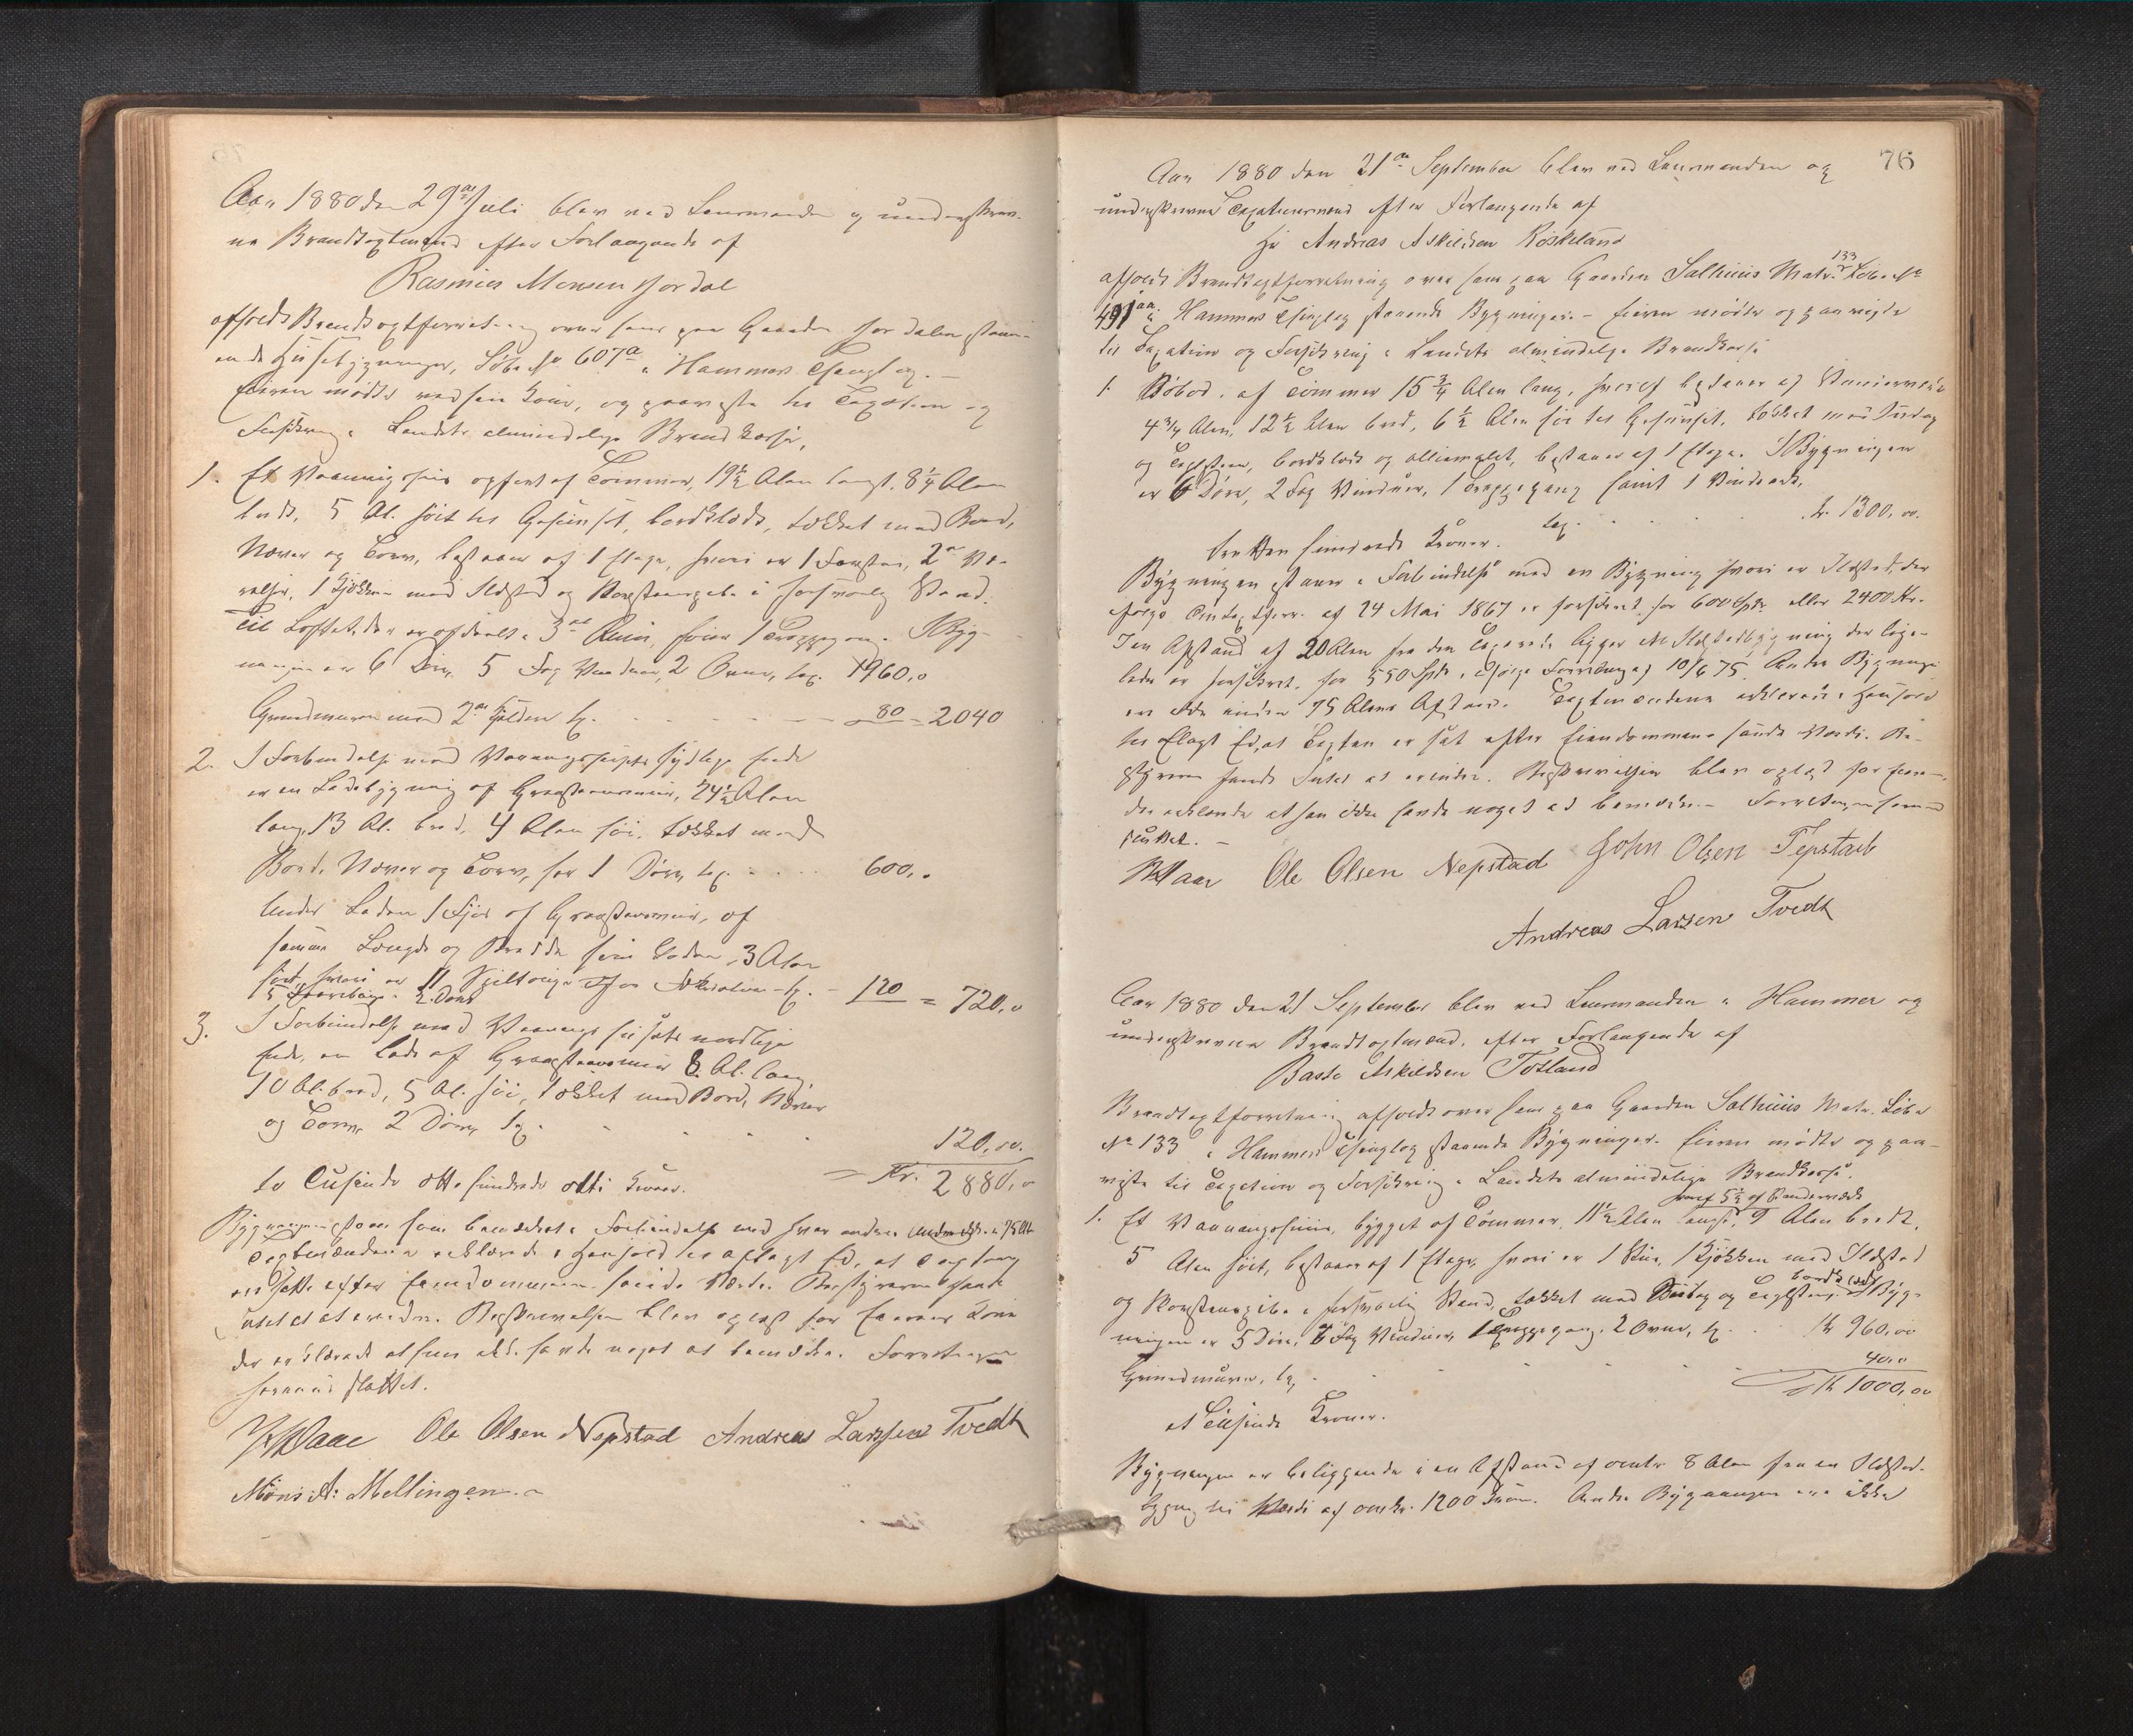 Aar 1880 den 29de Juli blev ved Lensmanden og underskrev-
ne Brandtaxtmænd efter Forlangende af
Rasmus Monsen Hordal
afholdt Brandtaxtforretning over hans paa Gaarden Hordalen staa-
ende Husebygninger, Løbe No 607a i Hammer Thinglag.-
Eieren mødte ved sin Kone, og paaviste til Taxation og
Forsikring i Landets almindelige Brandkasse,
1. Et Vaaningshus opført af Tømmer, 19½ Alen langt, 8¼ Alen
bredt, 5 Al. høit til Gesimset, bordklædt, tækket med Bord,
Næver og Torv, bestaar af 1 Etage, hvori er 1 Forstue, 2de Væ-
relser, 1 Kjøkken med Ildsted og Skorstenspibe i forsvarlig Stand.
Til Loftet, der er afdeelt i 3de Rum, fører 1 Trappegang. I Byg-
ningen er 6 Døre, 5 Fag Vinduer, 2 Ovne, tax. 1960,0
Grundmuren med 2de Kjeldere tx. 80 = 2040
2. I Forbindelse med Vaaningshusets sydlige Ende
er en Ladebygning af Graastensmuur, 24½ Alen
lang, 13 Al. bred, 4 Alen høi, tækket med
Bord, Næver og Torv, har 1 Dør, tax. 600,.
Under Laden 1 Fjøs af Graastensmuur, af
samme Længde og Bredde som Laden, 3 Alen
høit, hvori er 11 Spiltouge tx. - 120 = 720,0
2 Døre
3. I Forbindelse med Vaaningshusets nordlige
Ende, en Lade af Graastensmuur 8 Al. lang,
10 Al. bred, 5 Al. høi, tækket med Bord, Næver
og Torv, 2 Døre, tx. 120,00.
to Tusinde otte hundrede otti Kroner. = Kr. 2880,0
Bygningerne staar som bemærket i Forbindelse med hver andre. Andre ikke i 75 Al.
Taxtmændene erklærede i Henhold til aflagt Ed, at Taxten
er satt efter Eiendommens sande Værdi. Bestyreren fandt
intet at erindre. Beskrivelsen blev oplæst for Eierens Kone
der erklærede at hun ikke havde noget at bemærke. Forretningen
hermed sluttet.
Ole Olsen Nepstad Andreas Larssen Tvedt
Mons A: Mellingen.-
76
Aar 1880 den 21de September blev ved Lensmanden og
underskrevne Taxationsmænd efter Forlangende af
Hr Andreas Askildsen Röskeland
afholdt Brandtaxtforretning over hans paa Gaarden Salhuus Matr. 133 Løbe No
491aa i Hammers Thinglag staaende Bygninger.- Eieren mødte og paaviste
til Taxation og Forsikring i Landets almindelige Brandkasse
1. Søbod, af Tømmer 15¾ Alen lang, hvoraf bestaaer af Bindværk
4¾ Alen, 12½ Alen bred, 6½ Alen høi til Gesimset, tækket med Sutag
og Taglsten, bordklædt og olliemalet, bestaaer af 1 Etage. I Bygningen
er 6 Døre, 2 Fag Vinduer, 1 Trappegang samt 1 Vindearb.
tax. Kr. 1300,00.
tretten hundrede Kroner.
Bygningen staaer i Forbindelse med en Bygning hvori er Ildsted, der
ifølge Omtaxtforr. af 24 Mai 1867 er forsikret for 600 Spd. eller 2400 Kr.
I en Afstand af 20 Alen fra den Taxerede ligger en Ildstedbygning der lige-
ledes er forsikret for 550 Spd. ifølge Forretning af 10/6 75. Andre Bygninger
er ikke inden 75 Alens Afstand. Taxtmændene erklærede i Henhold
til aflagt Ed, at Taxten er sat efter Eiendommens sande Værdi. Be-
styreren fandt Intet at erindre. Beskrivelsen blev oplæst for Eieren,
der erklærede at han ikke havde noget at bemærke.- Forretningen hermed
sluttet.-
Ole Olsen Nepstad John Olsen Tepstad
Andreas Larsen Tvedt
Aar 1880 den 21 September blev ved Lensmanden i Hammer og
underskrevne Brandtaxtmænd, efter Forlangende af
Baste Askildsen Totland
Brandtaxtforretning afholdt over hans paa Gaarden Salhuus Matr. Løbe
No 133 i Hammers Thinglag staaende Bygninger. Eieren mødte og paa-
viste til Taxation og Forsikring i Landets almindelige Brandkasse.
hvoraf 5½ af Bindværk
1. Et Vaaningshuus, bygget af Tømmer, 11½ Alen langt, 9 Alen bredt,
5 Alen høit, bestaaer af 1 Etage, hvori er 1 Stue, 1 Kjøkken med Ildsted
bordklædt
og Skorstenspibe i forsvarlig Stand, tækket med Sutag og Taglsten. I Byg-
ningen er 5 Døre, 7 Fag Vinduer, 1 Trappegang, 2 Ovne, tx. Kr 960,00
Grundmuren, tx. 40,0
Kr 1000,00
et Tusinde Kroner.
Bygningen er beliggende i en Afstand af omtr. 8 Alen fra en Ildsted-
bygning til Værdi af omtr. 1200 Kroner. Andre Bygninger ere ikke